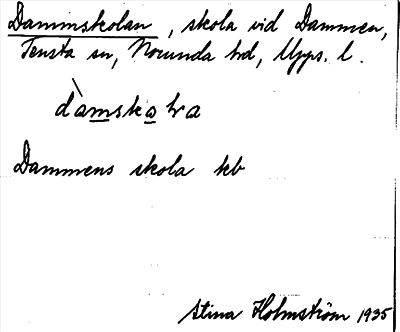 Dammskolan, skola vid Dammen,
Tensta sn, Norunda hd, Upps. l.
dàmskolra
Dammens skola kb
Stina Holmström 1935